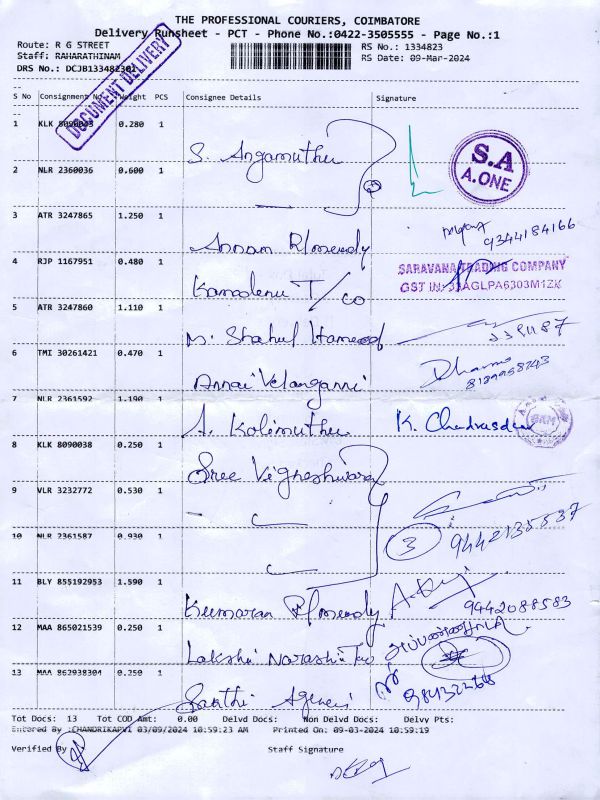 THE PROFESSIONAL COURIERS, COIMBATORE
Delivery Runsheet - PCT - Phone No.:0422-3505555 - Page No.:1
Route: R G STREET
RS No.: 1334823
Staff: RAHARATHINAM
RS Date: 09-Mar-2024
DRS No.: DCJB133482301
DOCUMENT DELIVERY
S No Consignment No Weight PCS Consignee Details Signature
1 KLK 8090043 0.280 1 S. Angamuthu
S.A
A.ONE
2 NLR 2360036 0.600 1
3 ATR 3247865 1.250 1 Annan R/mendy 9344184166
4 RJP 1167951 0.480 1 Kamdenu T/co
SARAVANA TRADING COMPANY
GST IN: 33AGLPA6303M1ZK
5 ATR 3247860 1.110 1 M. Shahul Hameed
6 TMI 30261421 0.470 1 Annai Velanganni Dharma
7 NLR 2361592 1.190 1 A. Kalimuthu K.
8 KLK 8090038 0.250 1 Sree Vigneshwara
9 VLR 3232772 0.530 1
3 9442135537
10 NLR 2361587 0.930 1
11 BLY 855192953 1.590 1 Kumaran R/mendy
9442088583
12 MAA 865021539 0.250 1 Lakshi
13 MAA 862938304 0.250 1 Sakthi
Tot Docs: 13 Tot COD Amt: 0.00 Delvd Docs: Non Delvd Docs: Delvy Pts:
Entered By :CHANDRIKAPVI 03/09/2024 10:59:23 AM Printed On: 09-03-2024 10:59:19
Verified By Staff Signature